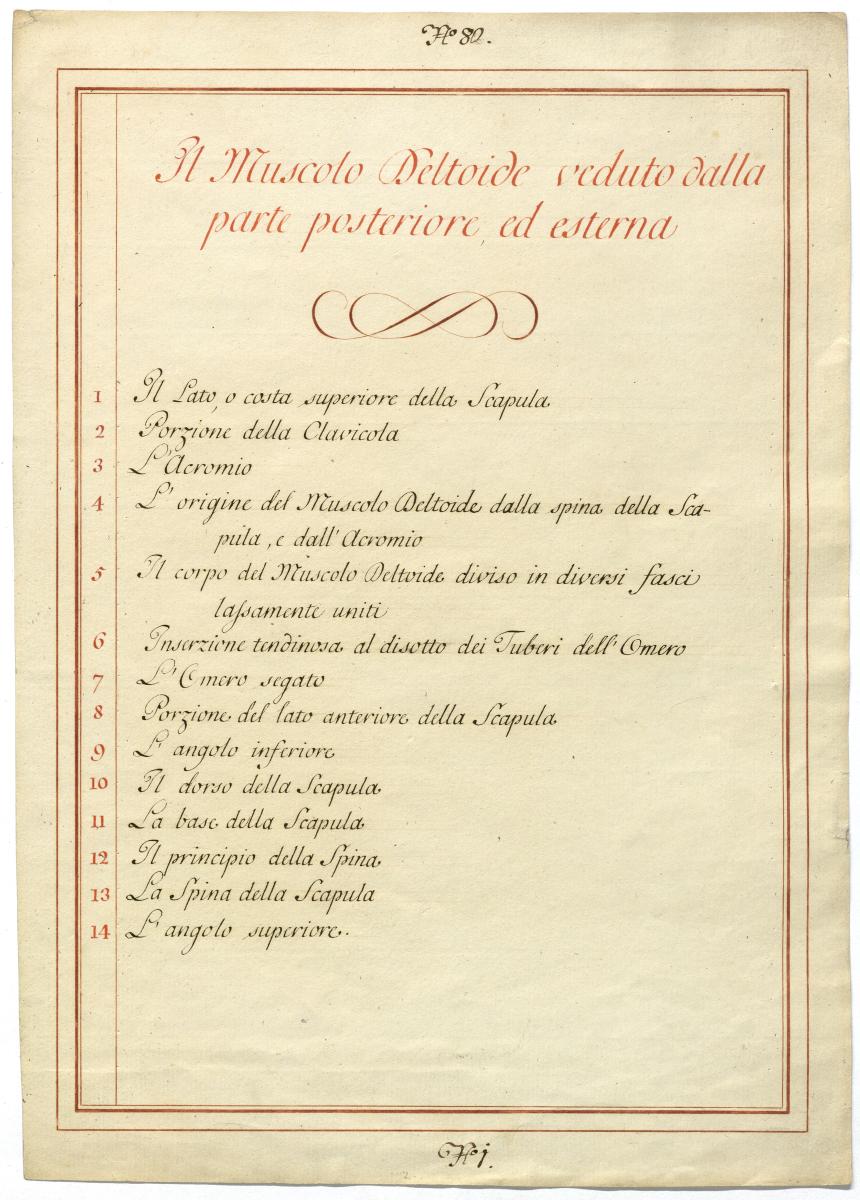 No 80.
Il Muscolo Deltoide veduto dalla
parte posteriore, ed esterna
1 Il Lato, o costa superiore della Scapula
2 Porzione della Clavicola
3 L'Acromio
4 L' origine del Muscolo Deltoide dalla spina della Sca-
pula, e dall'Acromio
5 Il corpo del Muscolo Deltoide diviso in diversi fasci
laſsamente uniti
6 Inserzione tendinosa al disotto dei Tuberi dell'Omero
7 L'Omero segato
8 Porzione del lato anteriore della Scapula
9 L' angolo inferiore
10 Il dorso della Scapula
11 La base della Scapula
12 Il principio della Spina
13 La Spina della Scapula
14 L' angolo superiore.
No 1.